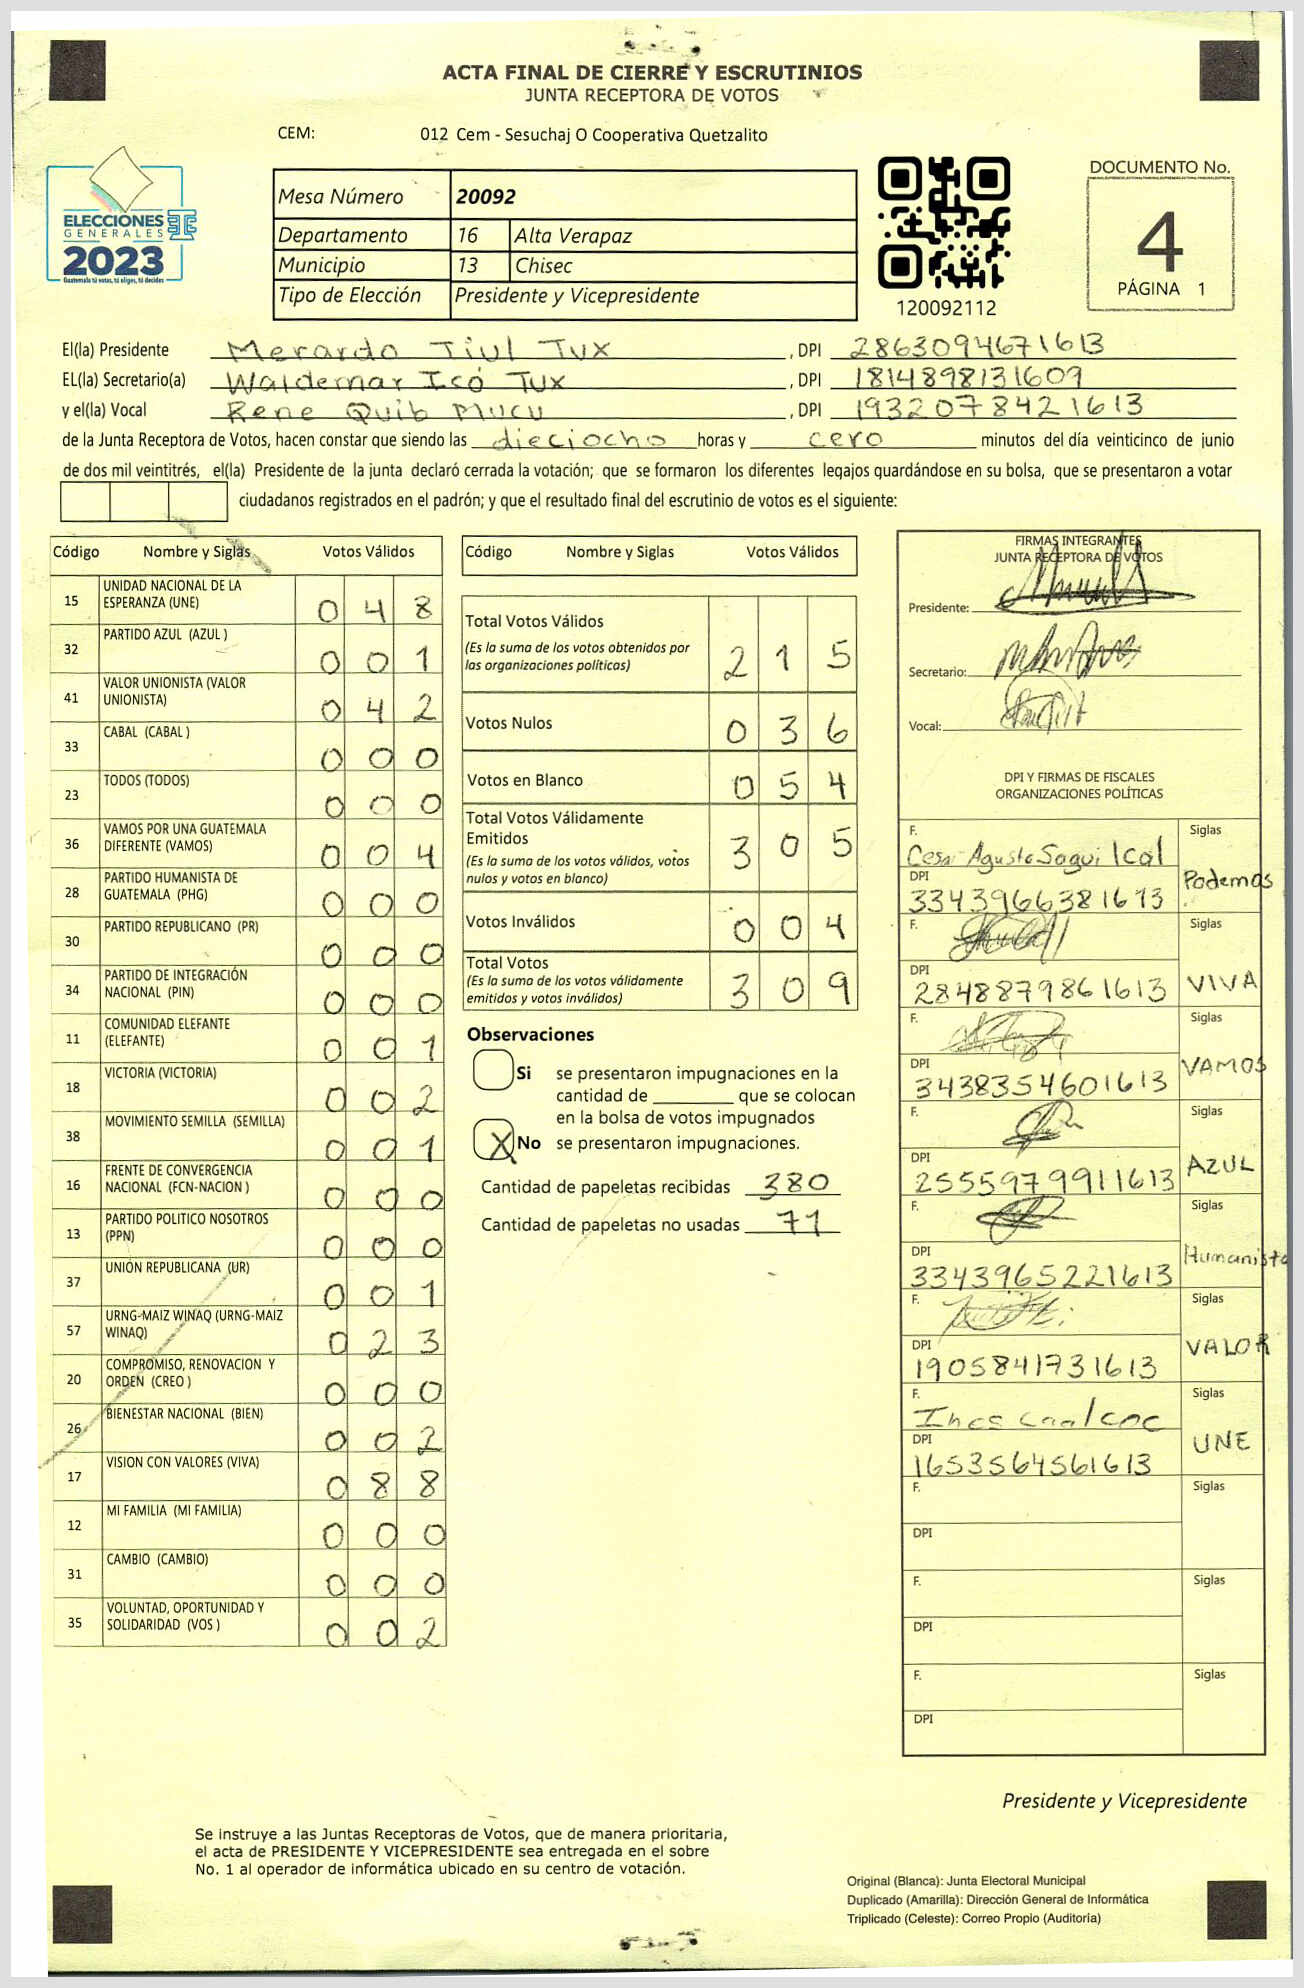 ACTA FINAL DE CIERRE Y ESCRUTINIOS
JUNTA RECEPTORA DE VOTOS
CEM: 012 Cem - Sesuchaj O Cooperativa Quetzalito
ELECCIONES
GENERALES
2023
Guatemala tú votas, tú eliges, tú decides
Mesa Número 20092
Departamento 16 Alta Verapaz
Municipio 13 Chisec
Tipo de Elección Presidente y Vicepresidente
120092112
DOCUMENTO No.
4
PÁGINA 1
El(la) Presidente Merardo Tiul Tux , DPI 2863094671613
EL(la) Secretario(a) Waldemar Icó Tux , DPI 1814898131609
y el(la) Vocal Rene Quib Mucu , DPI 1932078421613
de la Junta Receptora de Votos, hacen constar que siendo las dieciocho horas y cero minutos del día veinticinco de junio
de dos mil veintitrés, el(la) Presidente de la junta declaró cerrada la votación; que se formaron los diferentes legajos quardándose en su bolsa, que se presentaron a votar
ciudadanos registrados en el padrón; y que el resultado final del escrutinio de votos es el siguiente:
Código Nombre y Siglas Votos Válidos
15 UNIDAD NACIONAL DE LA ESPERANZA (UNE) 0 4 8
32 PARTIDO AZUL (AZUL ) 0 0 1
41 VALOR UNIONISTA (VALOR UNIONISTA) 0 4 2
33 CABAL (CABAL ) 0 0 0
23 TODOS (TODOS) 0 0 0
36 VAMOS POR UNA GUATEMALA DIFERENTE (VAMOS) 0 0 4
28 PARTIDO HUMANISTA DE GUATEMALA (PHG) 0 0 0
30 PARTIDO REPUBLICANO (PR) 0 0 0
34 PARTIDO DE INTEGRACIÓN NACIONAL (PIN) 0 0 0
11 COMUNIDAD ELEFANTE (ELEFANTE) 0 0 1
18 VICTORIA (VICTORIA) 0 0 2
38 MOVIMIENTO SEMILLA (SEMILLA) 0 0 1
16 FRENTE DE CONVERGENCIA NACIONAL (FCN-NACION ) 0 0 0
13 PARTIDO POLITICO NOSOTROS (PPN) 0 0 0
37 UNIÓN REPUBLICANA (UR) 0 0 1
57 URNG-MAIZ WINAQ (URNG-MAIZ WINAQ) 0 2 3
20 COMPROMISO, RENOVACION Y ORDEN (CREO ) 0 0 0
26 BIENESTAR NACIONAL (BIEN) 0 0 2
17 VISION CON VALORES (VIVA) 0 8 8
12 MI FAMILIA (MI FAMILIA) 0 0 0
31 CAMBIO (CAMBIO) 0 0 0
35 VOLUNTAD, OPORTUNIDAD Y SOLIDARIDAD (VOS ) 0 0 2
Código Nombre y Siglas Votos Válidos
Total Votos Válidos 2 1 5
(Es la suma de los votos obtenidos por
las organizaciones políticas)
Votos Nulos 0 3 6
Votos en Blanco 0 5 4
Total Votos Válidamente
Emitidos 3 0 5
(Es la suma de los votos válidos, votos
nulos y votos en blanco)
Votos Inválidos 0 0 4
Total Votos 3 0 9
(Es la suma de los votos válidamente
emitidos y votos inválidos)
Observaciones
Si se presentaron impugnaciones en la
cantidad de ________ que se colocan
en la bolsa de votos impugnados
X No se presentaron impugnaciones.
Cantidad de papeletas recibidas 380
Cantidad de papeletas no usadas 71
FIRMAS INTEGRANTES
JUNTA RECEPTORA DE VOTOS
Presidente:
Secretario:
Vocal:
DPI Y FIRMAS DE FISCALES
ORGANIZACIONES POLÍTICAS
F. Siglas
Cesar Agusto Saqui Ical
DPI Podemos
3343966381613
F. Siglas
DPI
2848879861613 VIVA
F. Siglas
DPI VAMOS
3438354601613
F. Siglas
DPI AZUL
2555979911613
F. Siglas
DPI Humanista
3343965221613
F. Siglas
DPI VALOR
1905841731613
F. Siglas
Ines Caal Coc
DPI UNE
1653564561613
F. Siglas
DPI
F. Siglas
DPI
F. Siglas
DPI
Presidente y Vicepresidente
Se instruye a las Juntas Receptoras de Votos, que de manera prioritaria,
el acta de PRESIDENTE Y VICEPRESIDENTE sea entregada en el sobre
No. 1 al operador de informática ubicado en su centro de votación.
Original (Blanca): Junta Electoral Municipal
Duplicado (Amarilla): Dirección General de Informática
Triplicado (Celeste): Correo Propio (Auditoría)